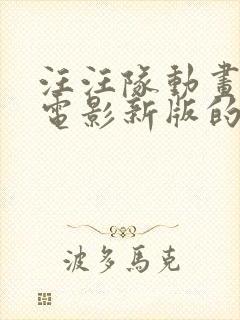 汪汪隊動畫
電影新版的
波多馬克